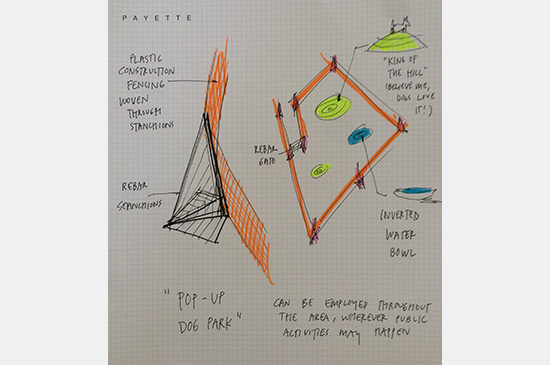 PAYETTE
PLASTIC
CONSTRUCTION
FENCING
WOVEN
THROUGH
STANCHIONS
REBAR
STANCHIONS
"KING OF
THE HILL"
(BELIEVE ME,
DOGS LOVE
IT!)
REBAR
GATE
INVERTED
WATER
BOWL
"POP-UP
DOG PARK"
CAN BE EMPLOYED THROUGHOUT
THE AREA, WHEREVER PUBLIC
ACTIVITIES MAY HAPPEN